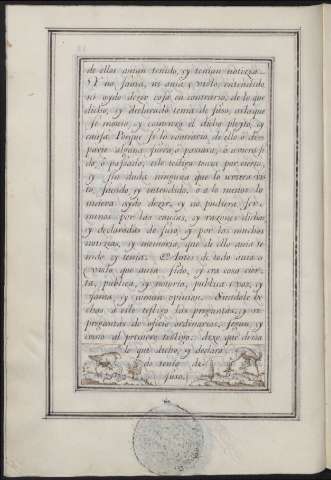 de ellos avian tenido, y tenian noticia.
Y no savia, ni avia visto, entendido
ni oydo dezir cosa en contrario, de lo que
dicho, y declarado tenia de suso, hasta que
se movio, y comenzo el dicho pleyto, y
causa. Porque si lo contrario, de ello ó de
parte alguna fuera, ó passara, ó uviera si
do, ó passado, este testigo tenia por cierto,
y sin duda ninguna que lo uviera vis
to, savido, y entendido, ó á lo menos lo
uviera oydo dezir, y no pudiera ser
menos por las causas, y razones dichas
y declaradas de suso, y por las muchas
noticias, y memoria, que de ello avia te
nido, y tenia. Antes de todo avia
visto que avia sido, y era cosa cier
ta, publica, y notoria, publica voz, y
fama, y comun opinion. Siendole he
chas á este testigo las preguntas, y re
preguntas de oficio ordenarias, segun, y
como al primero testigo: dixo que dezia
lo que dicho, y declara
do tenia de
suso.